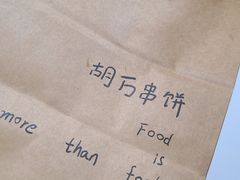 胡万串饼
Food
is
more than